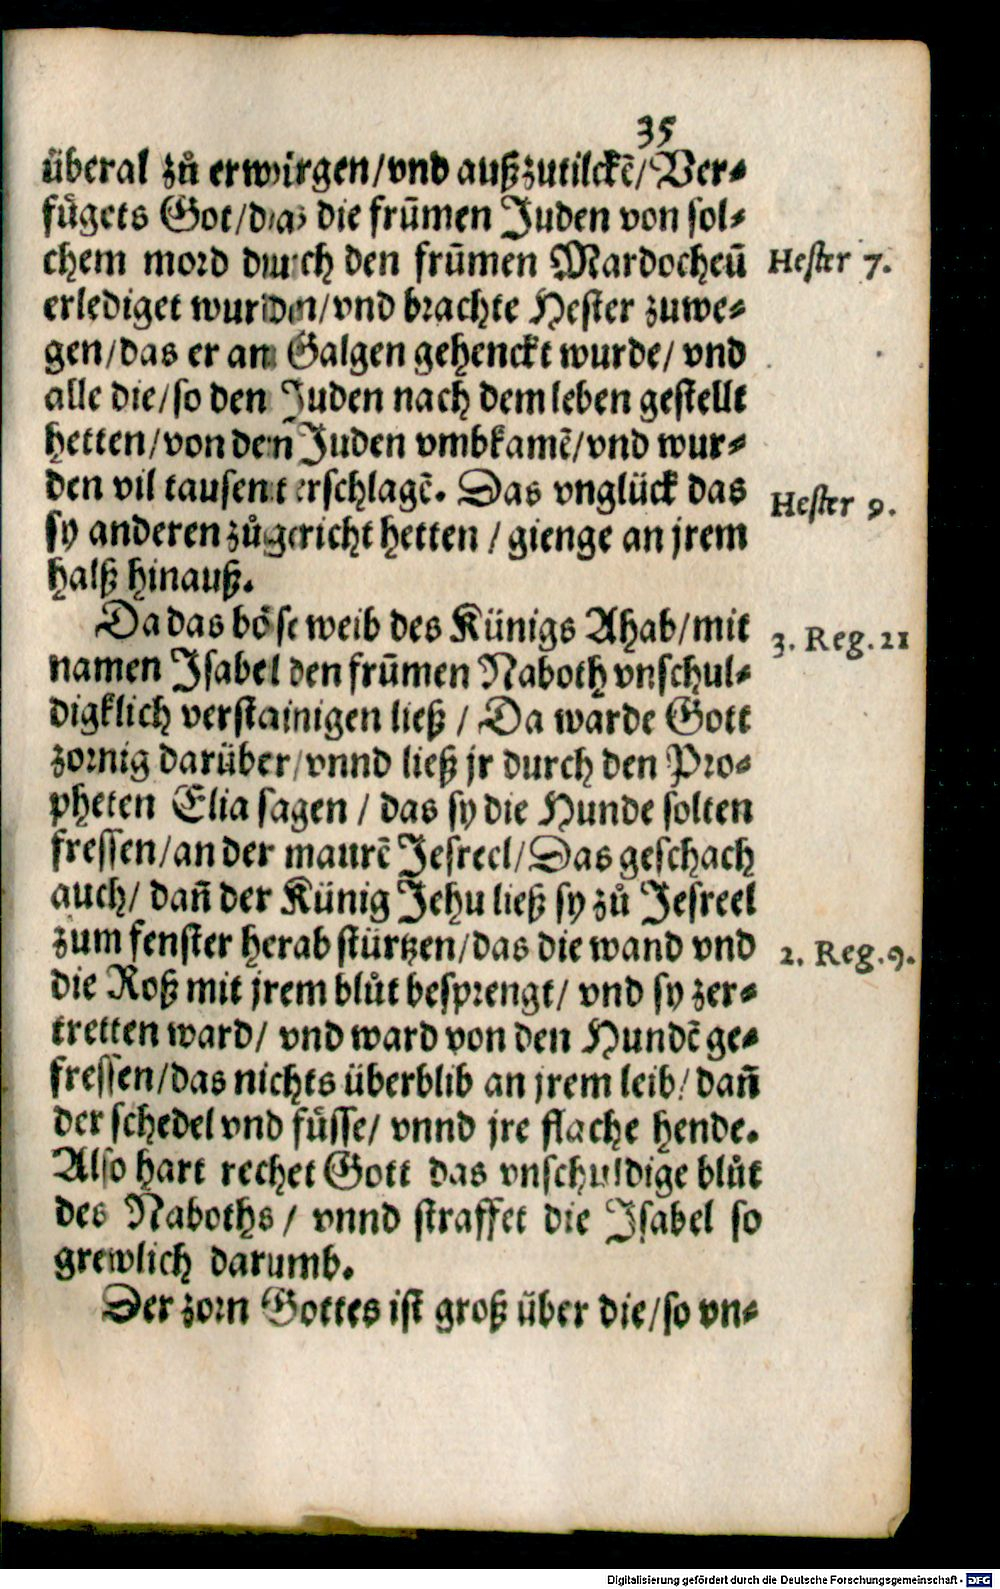 35
überal zů erwürgen/vnd außzutilckẽ/Ver⸗
fůgets Got/das die frũmen Juden von sol⸗
chem mord durch den frũmen Mardocheũ
Hester 7.
erlediget wurden/vnd brachte Hester zuwe⸗
gen/das er an Galgen gehenckt wurde/ vnd
alle die/so den Juden nach dem leben gestellt
hetten/von den Juden vmbkamẽ/vnd wur⸗
den vil tausent erschlagẽ. Das vnglück das
Hester 9.
sy anderen zůgericht hetten / gienge an jrem
halß hinauß.
Da das böse weib des Künigs Ahab/mit
3. Reg. 21
namen Isabel den frũmen Naboth vnschul⸗
digklich verstainigen ließ / Da warde Gott
zornig darüber/vnnd ließ jr durch den Pro⸗
pheten Elia sagen / das sy die Hunde solten
fressen/an der maurẽ Jesreel/Das geschach
auch/ dañ der Künig Jehu ließ sy zů Jesreel
zum fenster herab stürtzen/das die wand vnd
2. Reg. 9.
die Roß mit jrem blůt besprengt/ vnd sy zer⸗
tretten ward/ vnd ward von den Hundẽ ge⸗
fressen/das nichts überblib an jrem leib/ dañ
der schedel vnd füsse/ vnnd jre flache hende.
Also hart rechet Gott das vnschuldige blůt
des Naboths / vnnd straffet die Isabel so
grewlich darumb.
Der zorn Gottes ist groß über die/so vn⸗
Digitalisierung gefördert durch die Deutsche Forschungsgemeinschaft - DFG